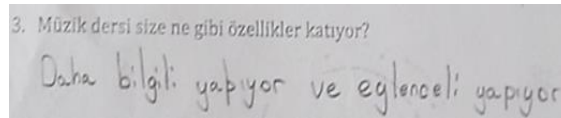 3. Müzik dersi size ne gibi özellikler katıyor?
Daha bilgili yapıyor ve eğlenceli yapıyor